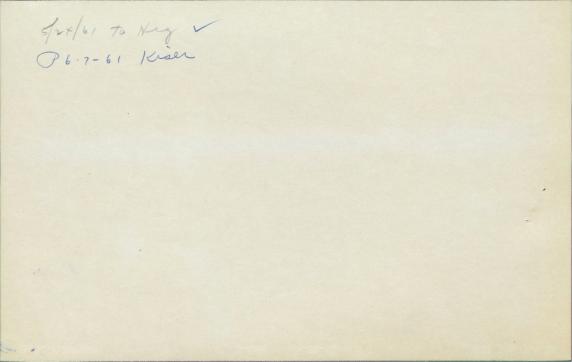 5/24/61 To Neg ✓
P 6-7-61 Kiser